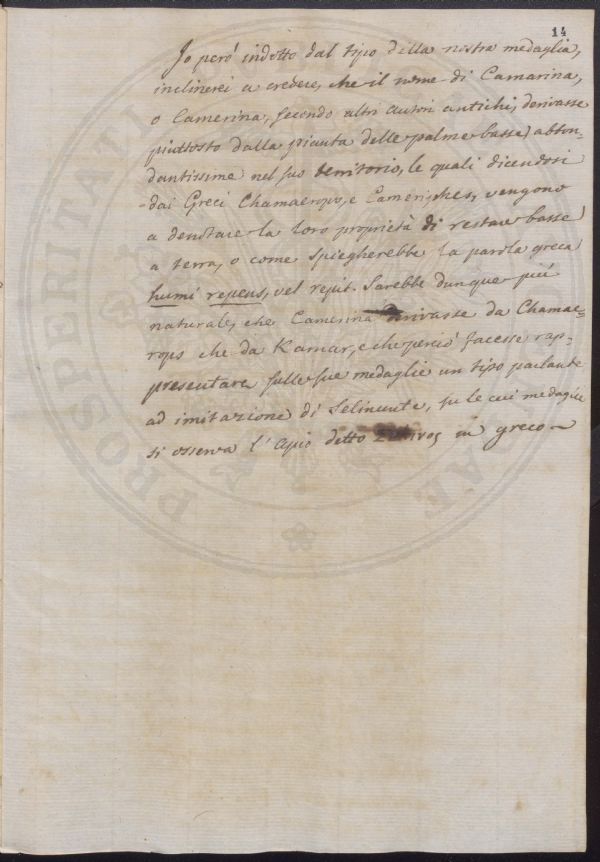 14
Jo però indotto dal tipo della nostra medaglia,
inclinerei a credere, che il nome di Camarina,
o Camerina, secondo altri autori antichi, derivasse
piuttosto dalla pianta delle palme basse abbon-
dantissime nel suo territorio, le quali dicendosi
dai Greci Chamaerops, e Cameriphes, vengono
a denotare la loro proprietà di restare basse
a terra, o come spiegherebbe la parola greca
humi repens, vel repit. Sarebbe dunque più
naturale, che Camerina derivasse da Chamae-
rops che da Kamar, e che perciò facesse rap-
presentare sulle sue medaglie un tipo parlante
ad imitazione di Selinunte, su le cui medaglie
si osserva l'Apio detto in greco
PROSPERITATI